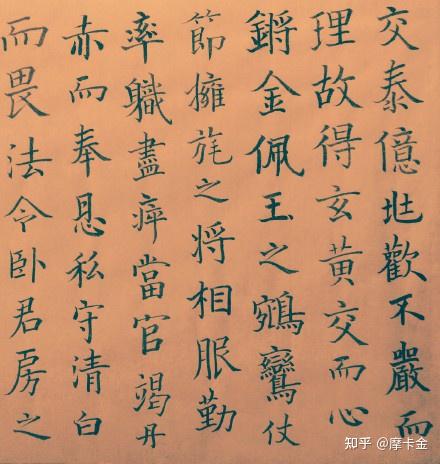 交泰億兆歡不嚴而
理故得玄黄交而心
鏘金佩玉之鵷鸞仗
節擁旄之将相服勤
率職盡瘁當官竭丹
赤而奉恩私守清白
而畏法令卧君房之
知乎 @摩卡金